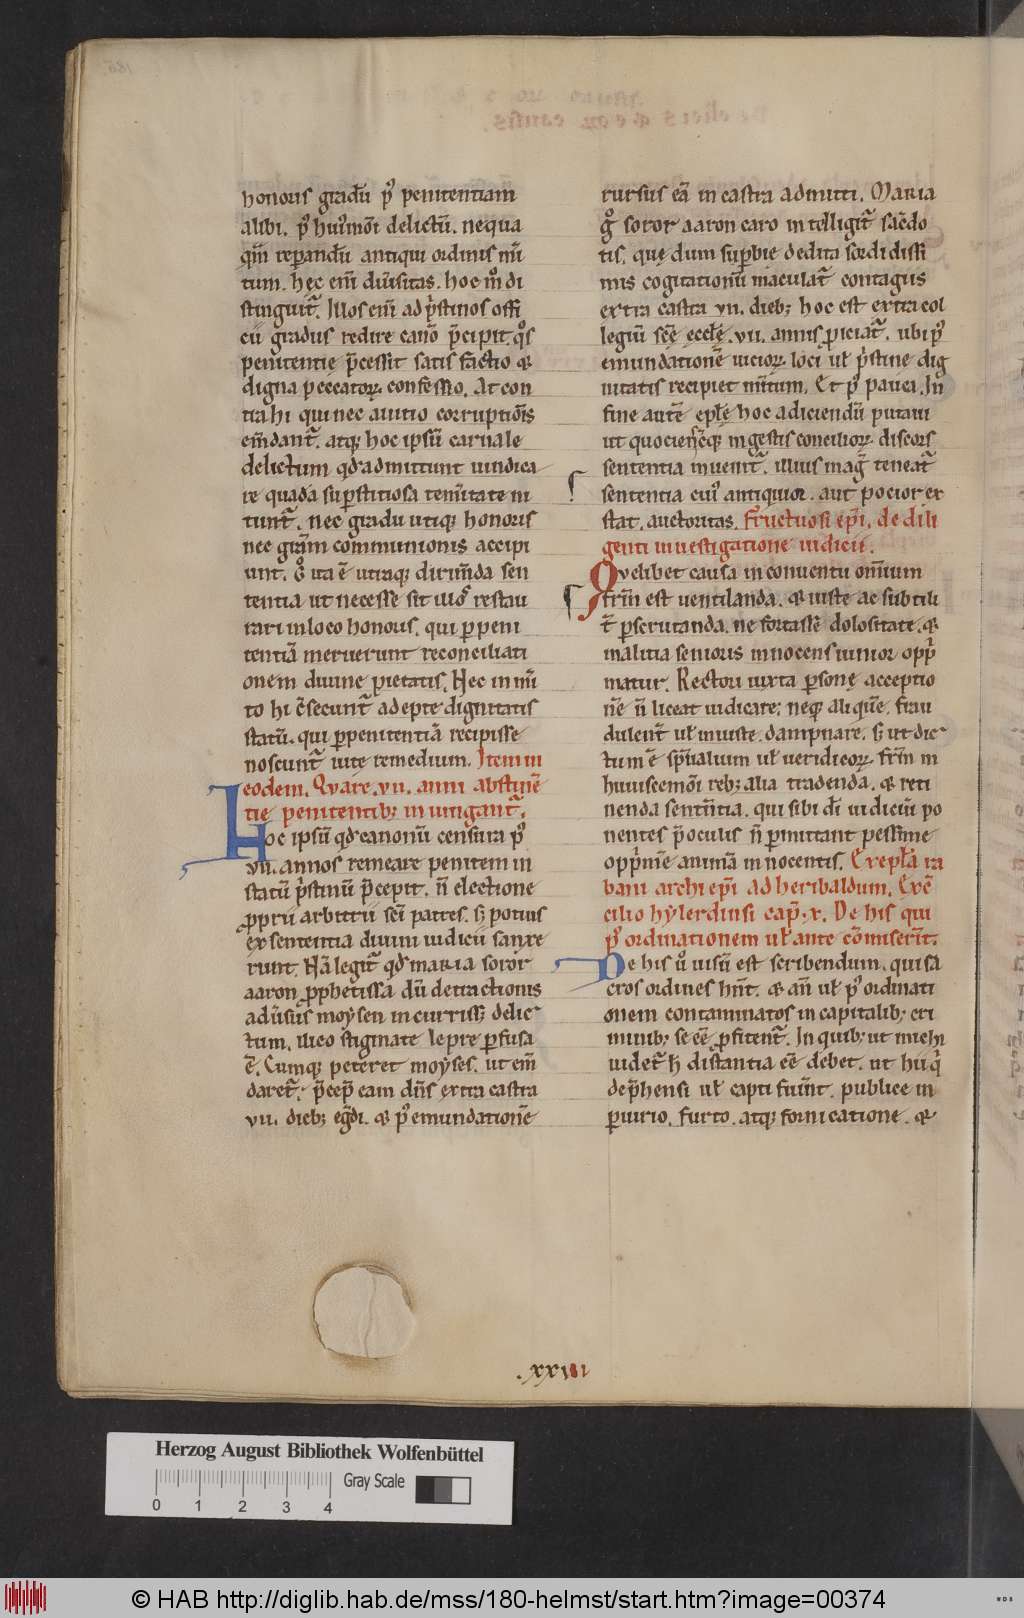 honoris gradū p̾ penitentiam
alibi. p̾ hui᷒mōi delictū. nequa
q̄m reperandū antiqui ordinis mī
tum. hęc enī diūsitas. hoc m̊ di
stinguit᷑. Illos enī ad p̓stinos offi
cii gradus redire canō p̄cipit. q̊s
penitentię p̄cessit satisfactio ⁊
digna peccatoꝝ confessio. At con
tra hi qui nec a uitio corruptiōis
em̄dant᷑. atq; hoc ipsū carnale
delictum qđ admittunt uindica
re quadā suꝑstitiosa tem̄itate ni
tunt᷑. nec gradū utiq; honoris
nec gr̄am communionis accipi
unt. g̊ ita ē utraq; dirim̄da sen
tentia ut necesse sit illos restau
rari in loco honoris. qui ꝑ peni
tentiā meruerunt reconciliati
onem diuine pietatis. Hec inmī
to hi c̄secunt᷑ adeptę dignitatis
statū. qui ꝑ penitentiā recipisse
noscunt᷑ uitę remedium. Item in
eodem. Quare .vii. anni abstinē
tię penitentib; iniungant᷑.
Hoc ipsū qđ canonū censura p̾
vii. annos remeare penitem̄ in
statū p̓stinū p̄cepit. n̄ electione
ꝓprii arbitrii sc̄i patres. s; potius
ex sententia diuini iudicii sanxe
runt. Nā legit᷑ qđ maria soror
aaron ꝓphetissa dū detractionis
adūsus moẏsen incurriss; delic
tum. ilico stigmate lepre ꝑfusa
ē. Cumq; peteret moẏses. ut em̄
daret᷑. p̄cep̄ eam dn̄s extra castra
vii. dieb; eg̓di. ⁊ p̾ emundationē
rursus eā in castra admitti. Maria
g̊ soror aaron caro intelligit᷑ sac̄do
tis. quę dum suꝑbie dedita sordidissi
mis cogitationū maculat᷑ contagiis
extra castra vii. dieb; hoc est extra col
legiū sc̄ę eccłę. vii. annis ꝓiciat᷑. ubi p̾
emundationē uicioꝝ. loci uł p̓stine dig
nitatis recipiet m̄itum. Et p̾ pauca. In
fine autē epłę hoc adiciendū putaui
ut quociensc̄q; in gestis concilioꝝ discors
sententia inuenit᷑. illius mag̓ teneat᷑
sententia cui᷒ antiquior. aut pocior ex
stat auctoritas. Fructuosi ep̄i. de dili
genti inuestigatione iudicii.
Quelibet causa in conuentu omnium
fr̄m est uentilanda. ⁊ iuste ac subtili
t̄ ꝑscrutanda. ne fortassē dolositate. ⁊
malitia senioris innocens iunior opp̓
matur. Rectori iuxta ꝑsonę acceptio
nē n̄ liceat iudicare; neq; aliquē. frau
dulent̄ uł iniuste. dampnare. s; ut dic
tum ē sp̄ualium uł ueridicoꝝ fr̄m in
huiuscemōi reb; alia tradenda. ⁊ reti
nenda sentn̄tia. qui sibi dī iudiciū po
nentes p̄ oculis n̄ ꝑmittant pessime
opp̓mē animā innocentis. Ex epłā ra
bani archiep̄i ad heribaldum. Ex c̄
cilio hẏlerdinsi cap̄. x. De his qui
p̾ ordinationem uł ante c̄miserīt.
De his u̾ uisū est scribendum. qui sa
cros ordines hn̄t. ⁊ an̄ uł p̾ ordinati
onem contaminatos in capitalib; cri
minib; se ēē ꝓfitent᷑. In quib; ut michi
uidet᷑ h̄ distantia ēē debet. ut hii q̓
dep̄hensi uł capti fuīnt. publice in
ꝑiurio. furto. atq; fornicatione. ⁊
.xxiiii
Herzog August Bibliothek Wolfenbüttel
Gray Scale
0 1 2 3 4
© HAB http://diglib.hab.de/mss/180-helmst/start.htm?image=00374